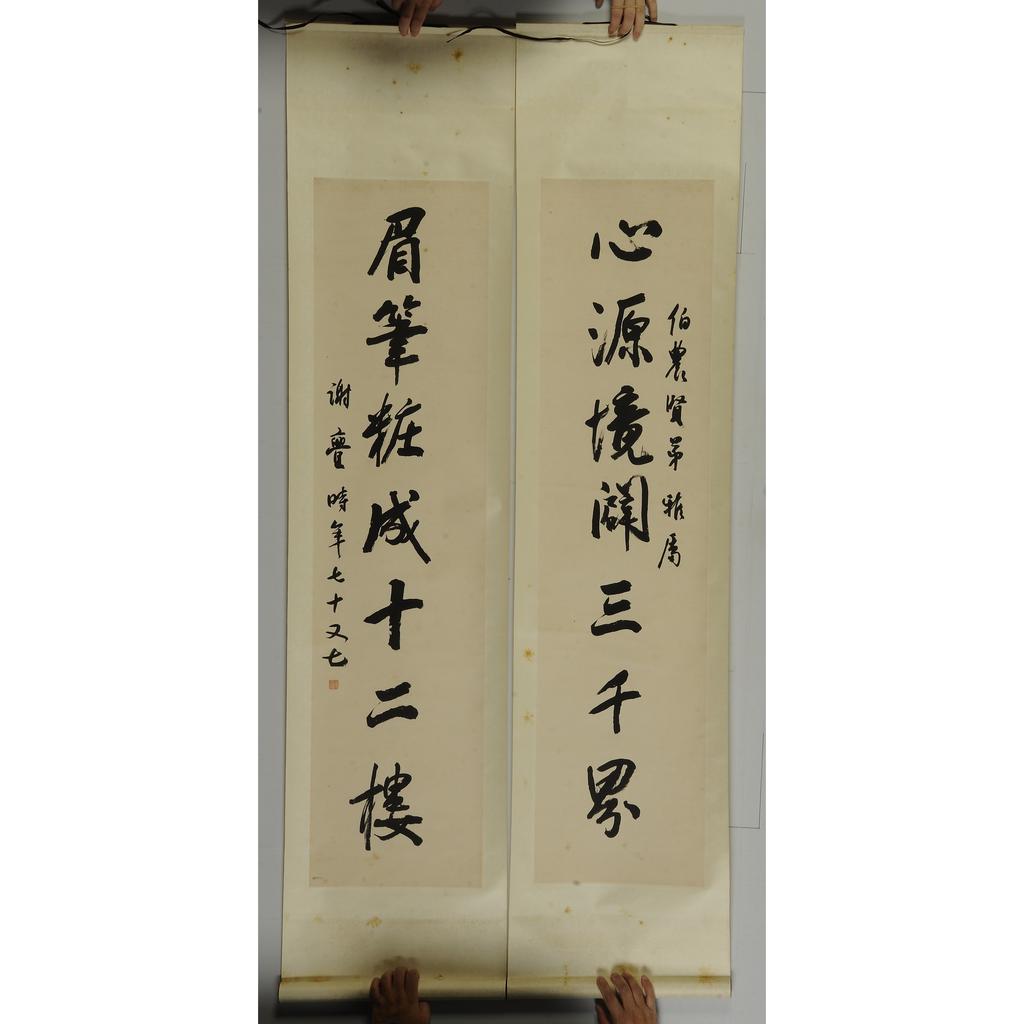 伯農賢弟雅屬
心源境闢三千界
眉筆粧成十二樓
謝 時年七十又七